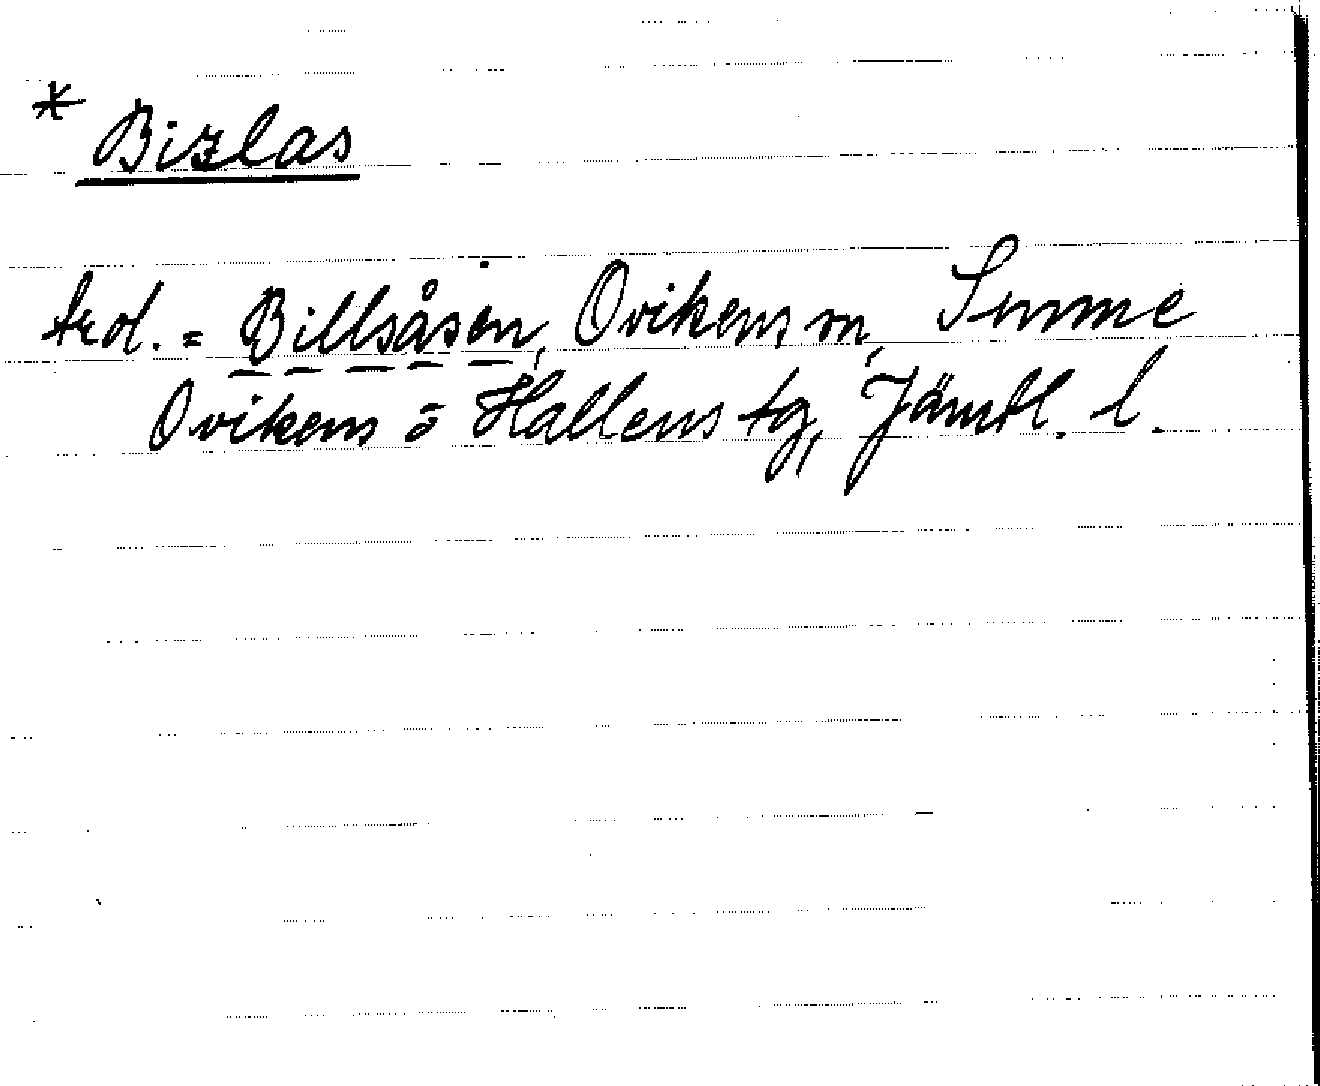 * Bizlas
trol. = Billsåsen, Ovikens sn, Sunne
Ovikens o Hallens tg, Jämtl. l.